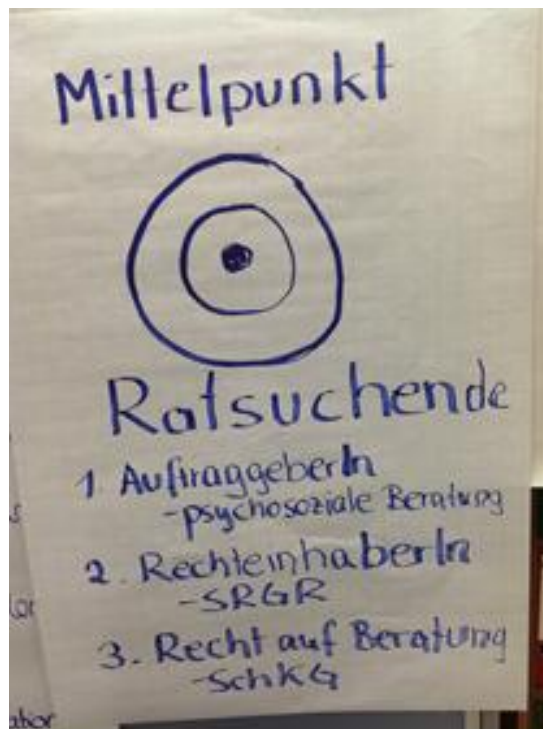 Mittelpunkt
Ratsuchende
1. AuftraggeberIn
-psychosoziale Beratung
2. RechteinhaberIn
-SRGR
3. Recht auf Beratung
-SchKG